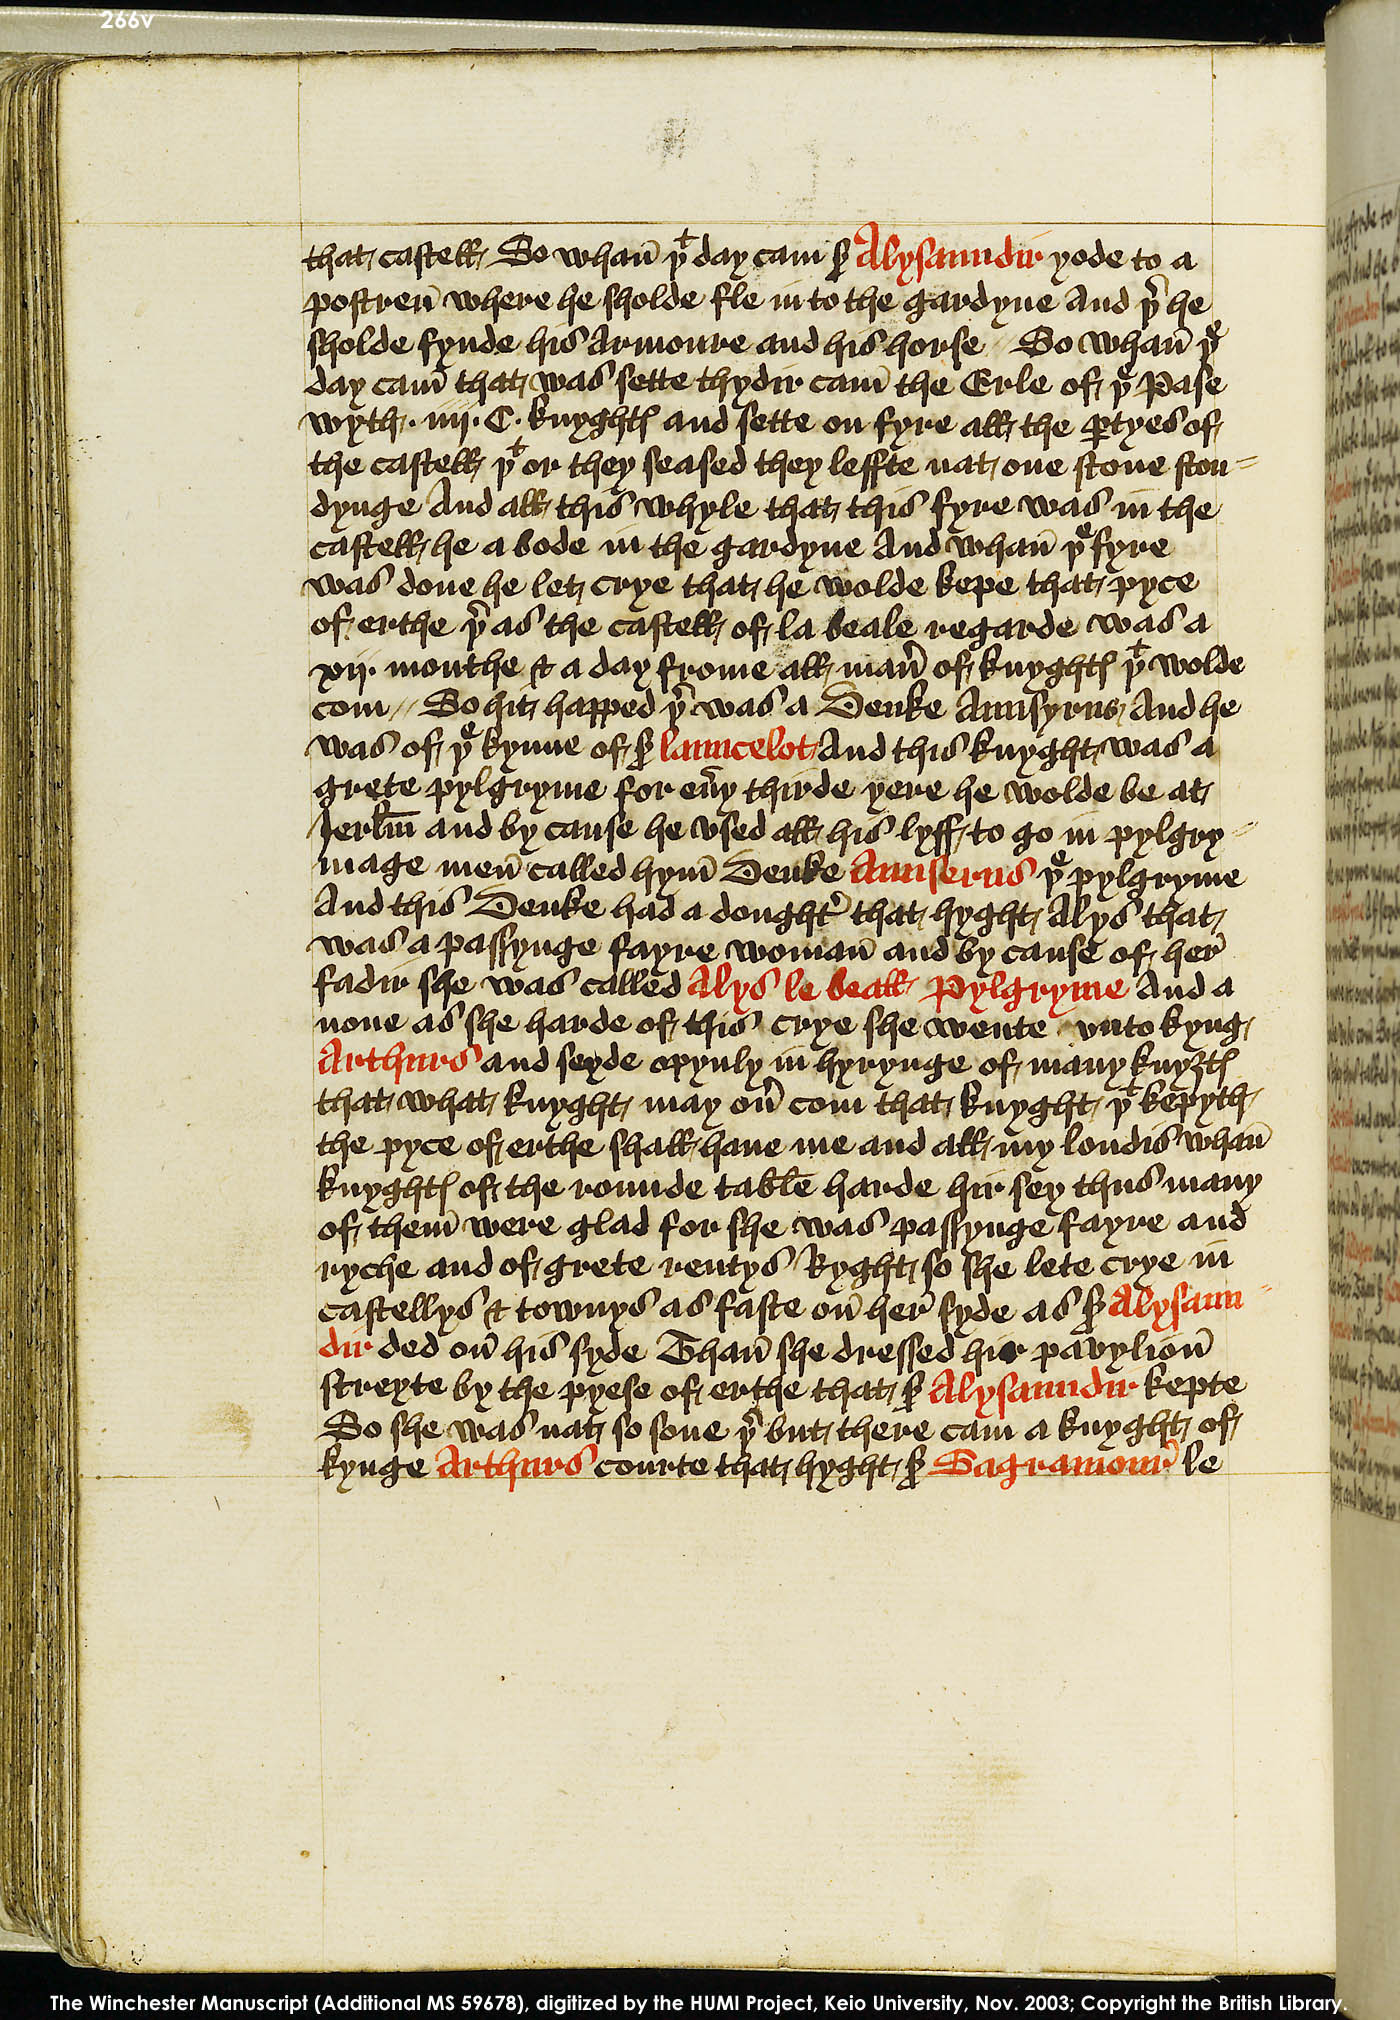 266v
that castell So whan̄ þᵗ day cam ẜ Alysaundir yode to a
postren̄ where he sholde fle in to the gardyne And þ̉ he
sholde fynde his Armoure and his horse // So whan̄ þᵉ
day cam̄ that was sette thydir cam̄ the Erle of þᵉ Pase
wyth · iiij · C · knyghtꝭ and sette on fyre all the ꝑtyes of
the castell þᵗ or they seased they leffte nat one stone ston=
dynge And all this whyle that this fyre was in the
castell he a bode in the gardyne And whan̄ þᵉ fyre
was done he let crye that he wolde kepe that pyce
of erthe þ̉ as the castell of la beale regarde was a
xij · monthe & a day frome all man̉ of knyghtꝭ þᵗ wolde
com // So hit happed þ̉ was a Deuke Aunsyrus And he
was of þᵉ kynne of ẜ launcelot And this knyght was a
grete pylgryme for eủy thirde yere he wolde be at
Jerłm and by cause he vsed all his lyff to go in pylgry=
mage men̄ called hym̄ Deuke Aunserus þᵉ pylgryme
And this Deuke had a dought̉ that hyght Alys that
was a passynge fayre woman̄ and by cause of her̉
fadir she was called Alys le beall Pylgryme And a
none as she harde of this crye she wente vnto kyng
Arthurs and seyde opynly in hyrynge of many knyȝtꝭ
that what knyght may oủ com that knyght þᵗ kepyth
the pyce of erthe shall haue me and all my londis whan̄
knyghtꝭ of the rounde table harde hir sey thus many
of them̄ were glad for she was passynge fayre and
ryche and of grete rentys Ryght so she lete crye in
castellys & townys as faste on̄ her̉ syde as ẜ Alysaun=
dir ded on̄ his syde Than̄ she dressed hir pavylion̄
streyte by the pyese of erthe that ẜ Alysaundir kepte
So she was nat so sone þ̉ but there cam a knyght of
kynge Arthurs courte that hyght ẜ Sagramour̉ le
The Winchester Manuscript (Additional MS 59678), digitized by the HUMI Project, Keio University, Nov. 2003; Copyright the British Library.